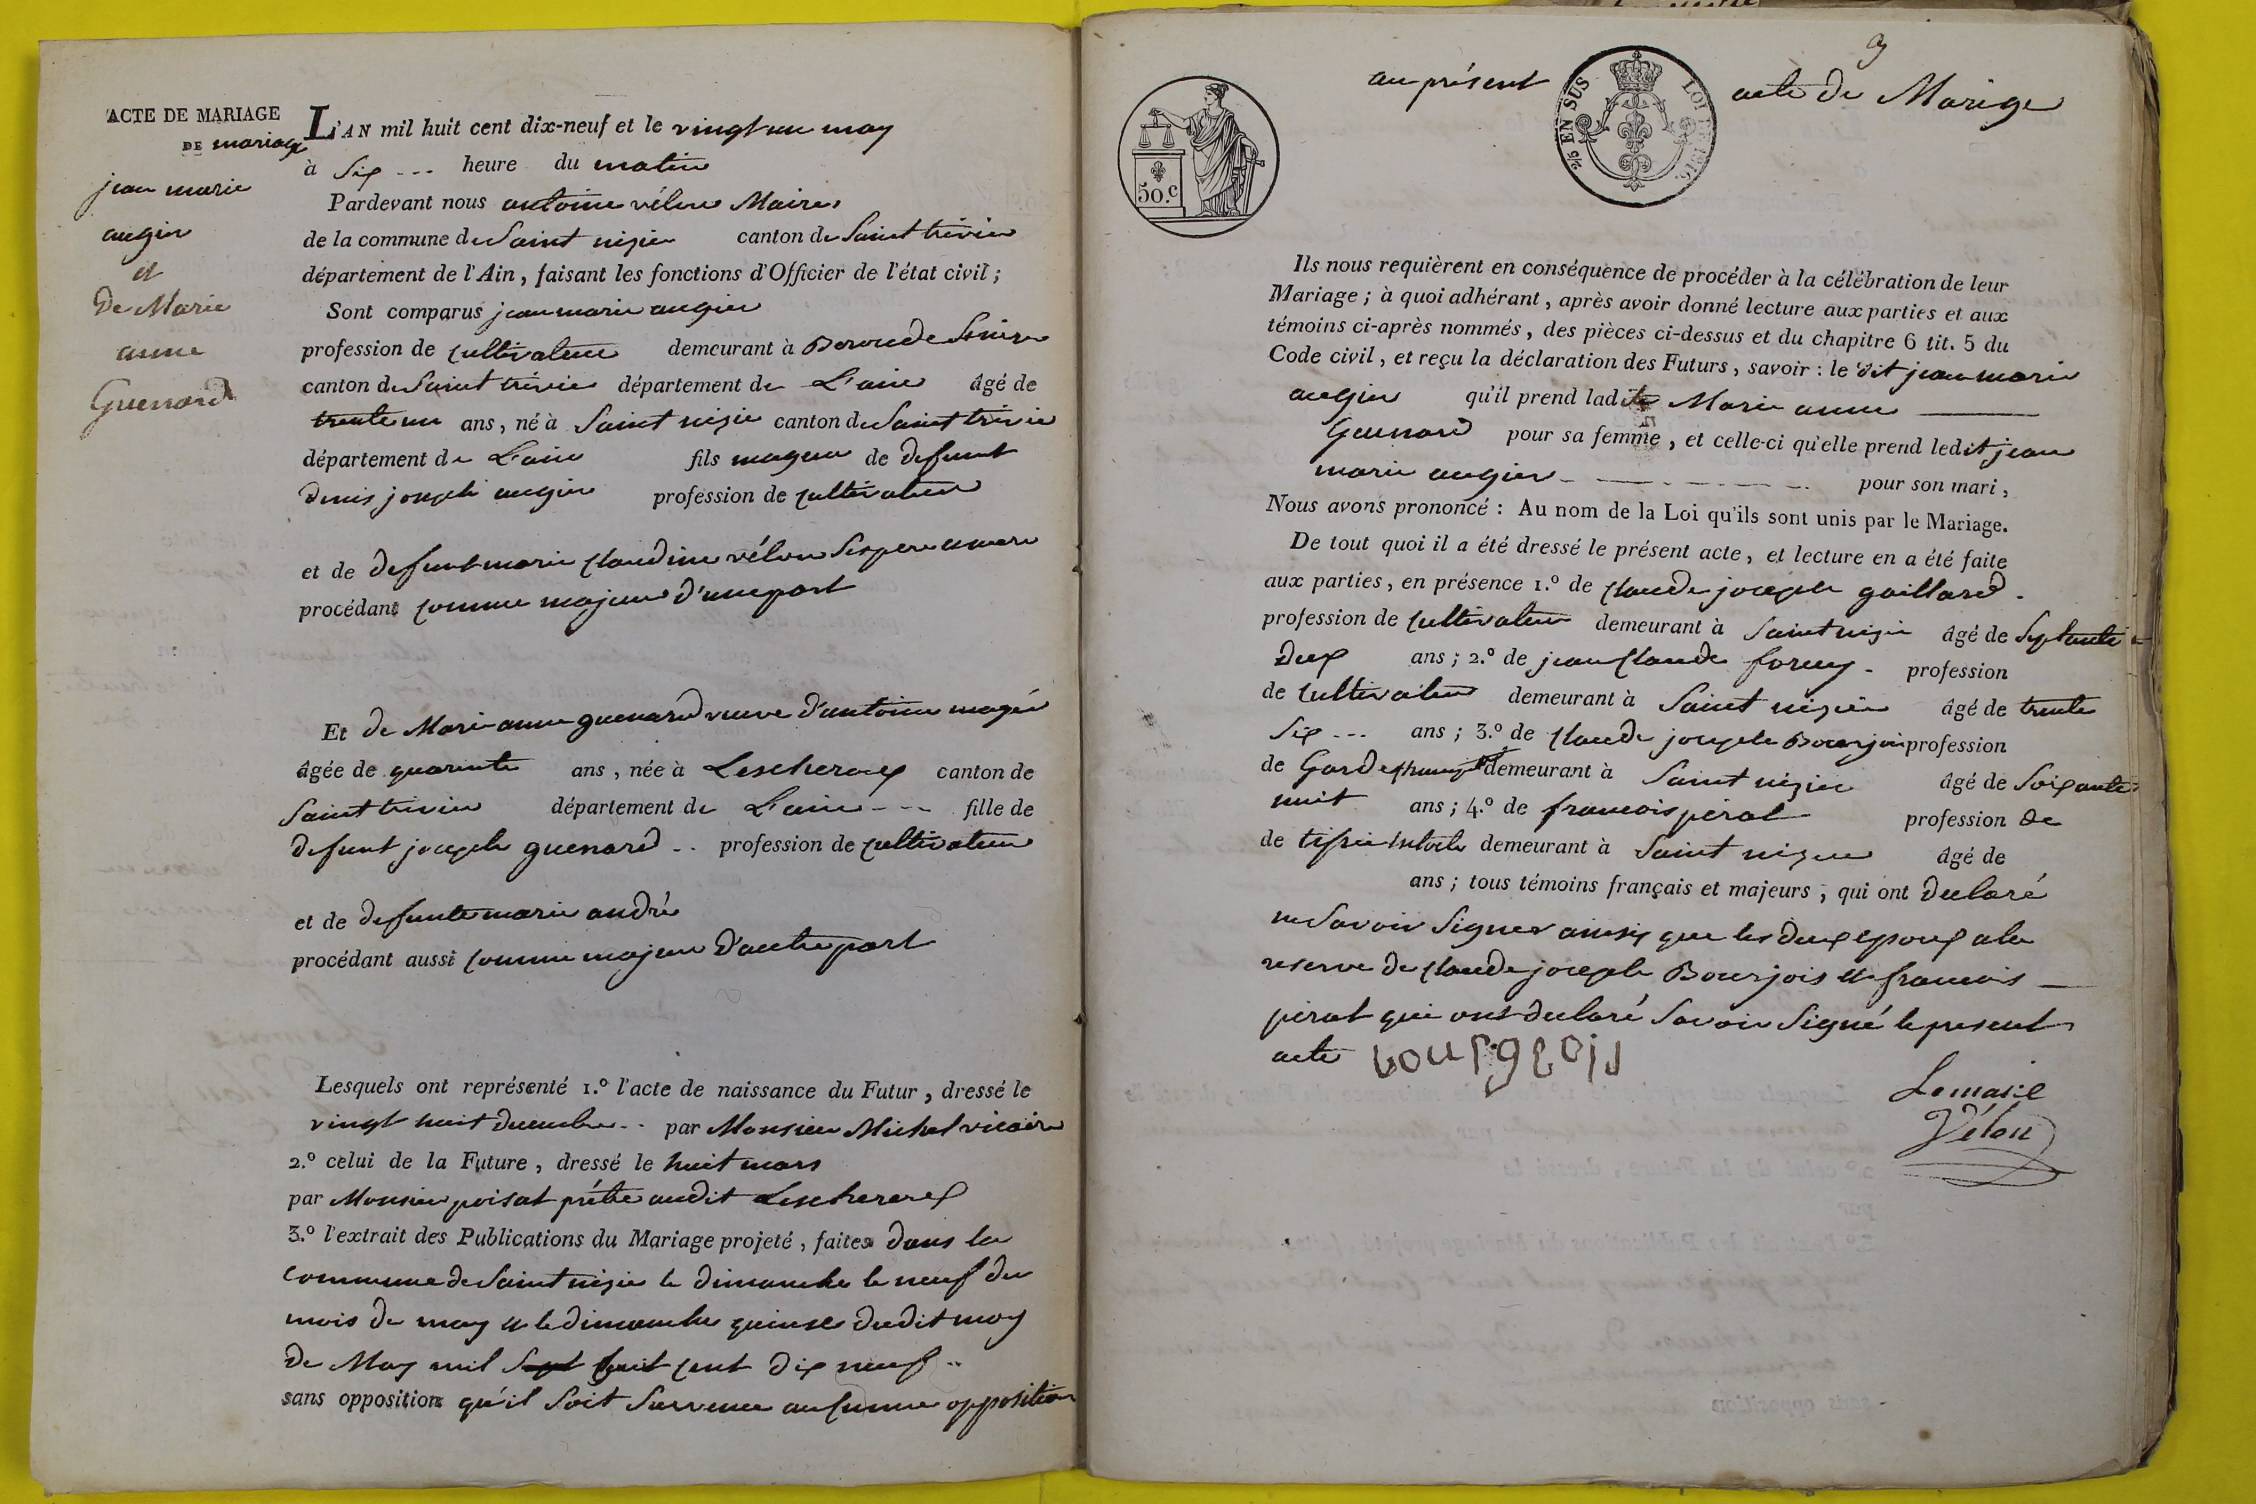 ACTE DE MARIAGE
DE mariage
jean marie
augier
et
De Marie
anne
Guenard
L'AN mil huit cent dix-neuf et le vingt un may
à Six --- heure du matin
Pardevant nous antoine vélon Maire
de la commune de Saint nizier canton de Saint trivier
département de l'Ain, faisant les fonctions d'Officier de l'état civil;
Sont comparus jean marie augier
profession de cultivateur demeurant à
canton de Saint trivie département de L'ain âgé de
trente un ans, né à Saint nizie canton de Saint trivie
département de L'ain fils mageur de defunt
denis joseph augier profession de cultivateur
et de defunt marie claudine vélon Ses pere a mere
procédant comme majeur d'une part
Et de Marie anne guenard veuve d'antoine
âgée de quarente ans, née à Lescheroux canton de
Saint trivier département de L'ain --- fille de
defunt joseph guenard -- profession de cultivateur
et de defunte marie andré
procédant aussi comme majeur D'autre part
Lesquels ont représenté 1.º l'acte de naissance du Futur, dressé le
vingt huit decembre -- par Monsieur Michel vicaire
2.º celui de la Future, dressé le huit mars
par Monsieur poisat prétre audit Lescheroux
3.º l'extrait des Publications du Mariage projeté, faites dans la
commune de Saint nizie le dimanche le neuf du
mois de may et le dimanche quinse dudit moy
de May mil Sept huit cent dix neuf --
sans opposition qu'il Soit Survenu aucunne opposition
9
au présent acte de Marige
2/5 EN SUS LOI DE 1816.
50.c
Ils nous requièrent en conséquence de procéder à la célébration de leur
Mariage; à quoi adhérant, après avoir donné lecture aux parties et aux
témoins ci-après nommés, des pièces ci-dessus et du chapitre 6 tit. 5 du
Code civil, et reçu la déclaration des Futurs, savoir: le dit jean marie
augier qu'il prend ladite Marie anne
Guenard pour sa femme, et celle-ci qu'elle prend ledit jean
marie augier pour son mari,
Nous avons prononcé: Au nom de la Loi qu'ils sont unis par le Mariage.
De tout quoi il a été dressé le présent acte, et lecture en a été faite
aux parties, en présence 1.º de claude joseph gaillard.
profession de cultivateur demeurant à Saint nizie âgé de Septante
deux ans; 2.º de jean claude profession
de cultivateur demeurant à Saint nizier âgé de trente
Six --- ans; 3.º de claude joseph Bourjois profession
de Garde demeurant à Saint nizier âgé de Soixante
nuit ans; 4.º de francois pérat profession de
de tissié demeurant à Saint nizier âgé de
ans; tous témoins français et majeurs, qui ont declaré
ne Savoir Signer ainsy que les deux epoux a la
reserve de claude joseph Bourjois et francois
pérat qui ont declaré Savoir Signé le present
acte bourgeois
Lemaire
Vélon